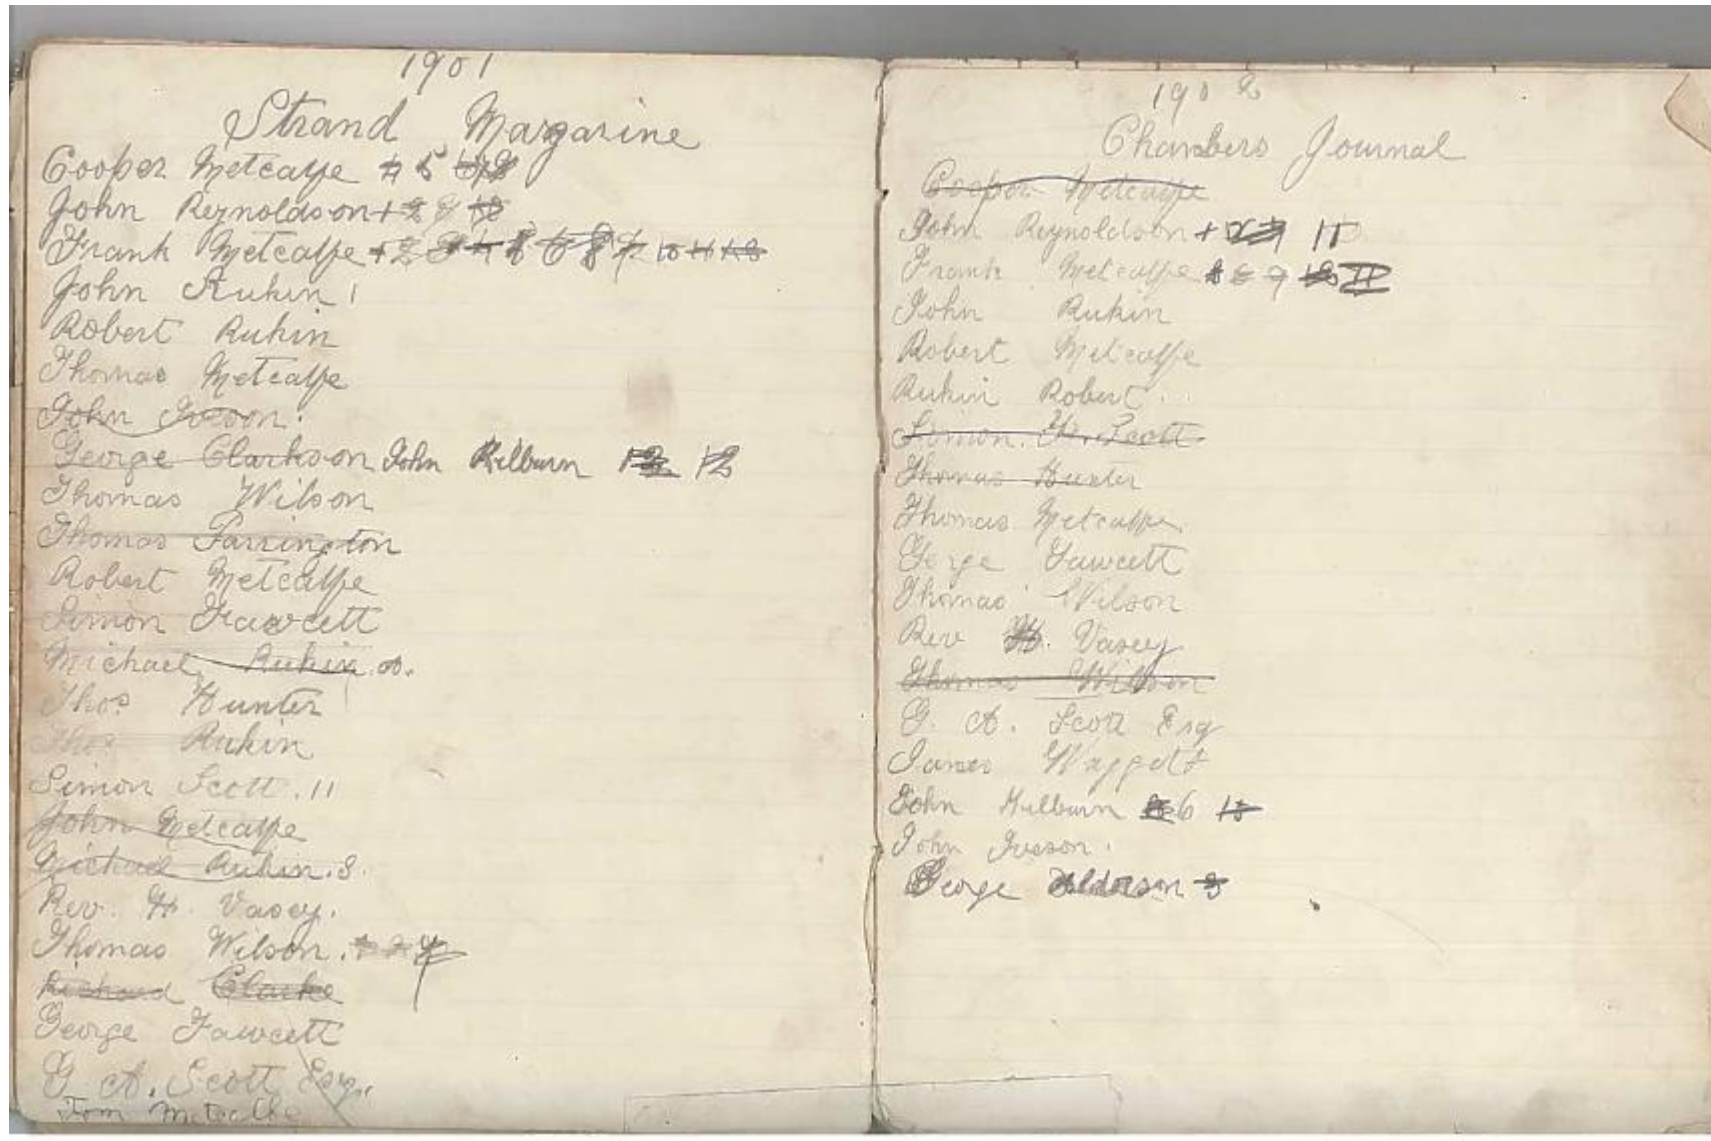 1901
Strand Margarine
Cooper Metcalfe # 5
John Reynoldson +
Frank Metcalfe + 2 10 11 12
John Rukin 1
Robert Rukin
Thomas Metcalfe
John Iveson.
George Clarkson John Kilburn 12 12
Thomas Wilson
Thomas Parrington
Robert Metcalfe
Simon Fawcett
Michael Rukin.
Thos Hunter
Thos Rukin
Simon Scott. 11
John Metcalfe
Michael Rukin. S.
Rev. H. Vasey.
Thomas Wilson.
Richard Clarke
George Fawcett
G. A. Scott Esq.
Tom Metcalfe
1902
Chambers Journal
Cooper Metcalfe
John Reynoldson + 11
Frank Metcalfe 8 9 11
John Rukin
Robert Metcalfe
Rukin Robert.
Simon. Scott
Thomas Hunter
Thomas Metcalfe
George Fawcett
Thomas Wilson
Rev H. Vasey
Thomas Wilson
G. A. Scott Esq
James Waggett
John Kilburn 6
John Iveson.
George Alderson